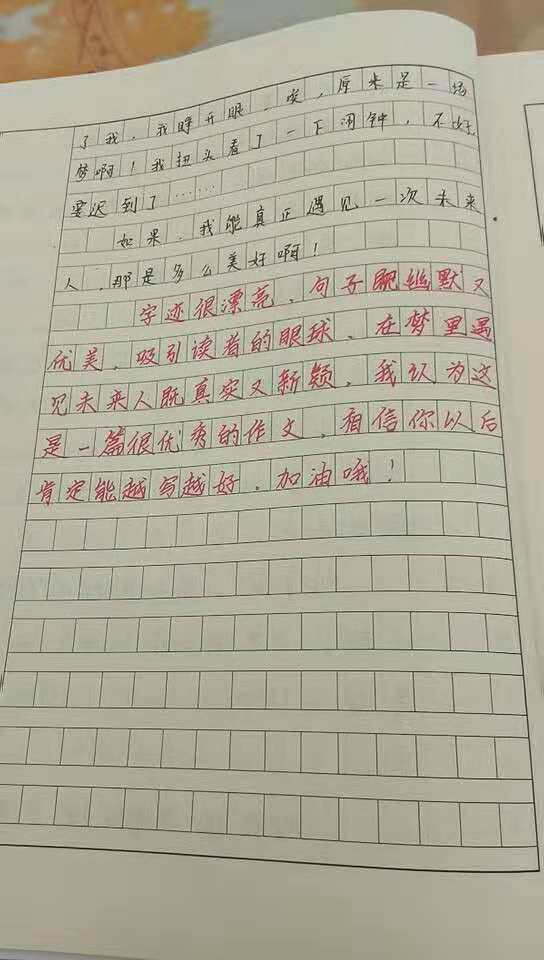 了我，我睁开眼，唉，原来是一场
梦啊！我扭头看了一下闹钟，不好，
要迟到了……
如果，我能真正遇见一次未来
人，那是多么美好啊！
字迹很漂亮、句子既幽默又
优美，吸引读者的眼球、在梦里遇
见未来人既真实又新颖、我认为这
是一篇很优秀的作文，相信你以后
肯定能越写越好。加油哦！